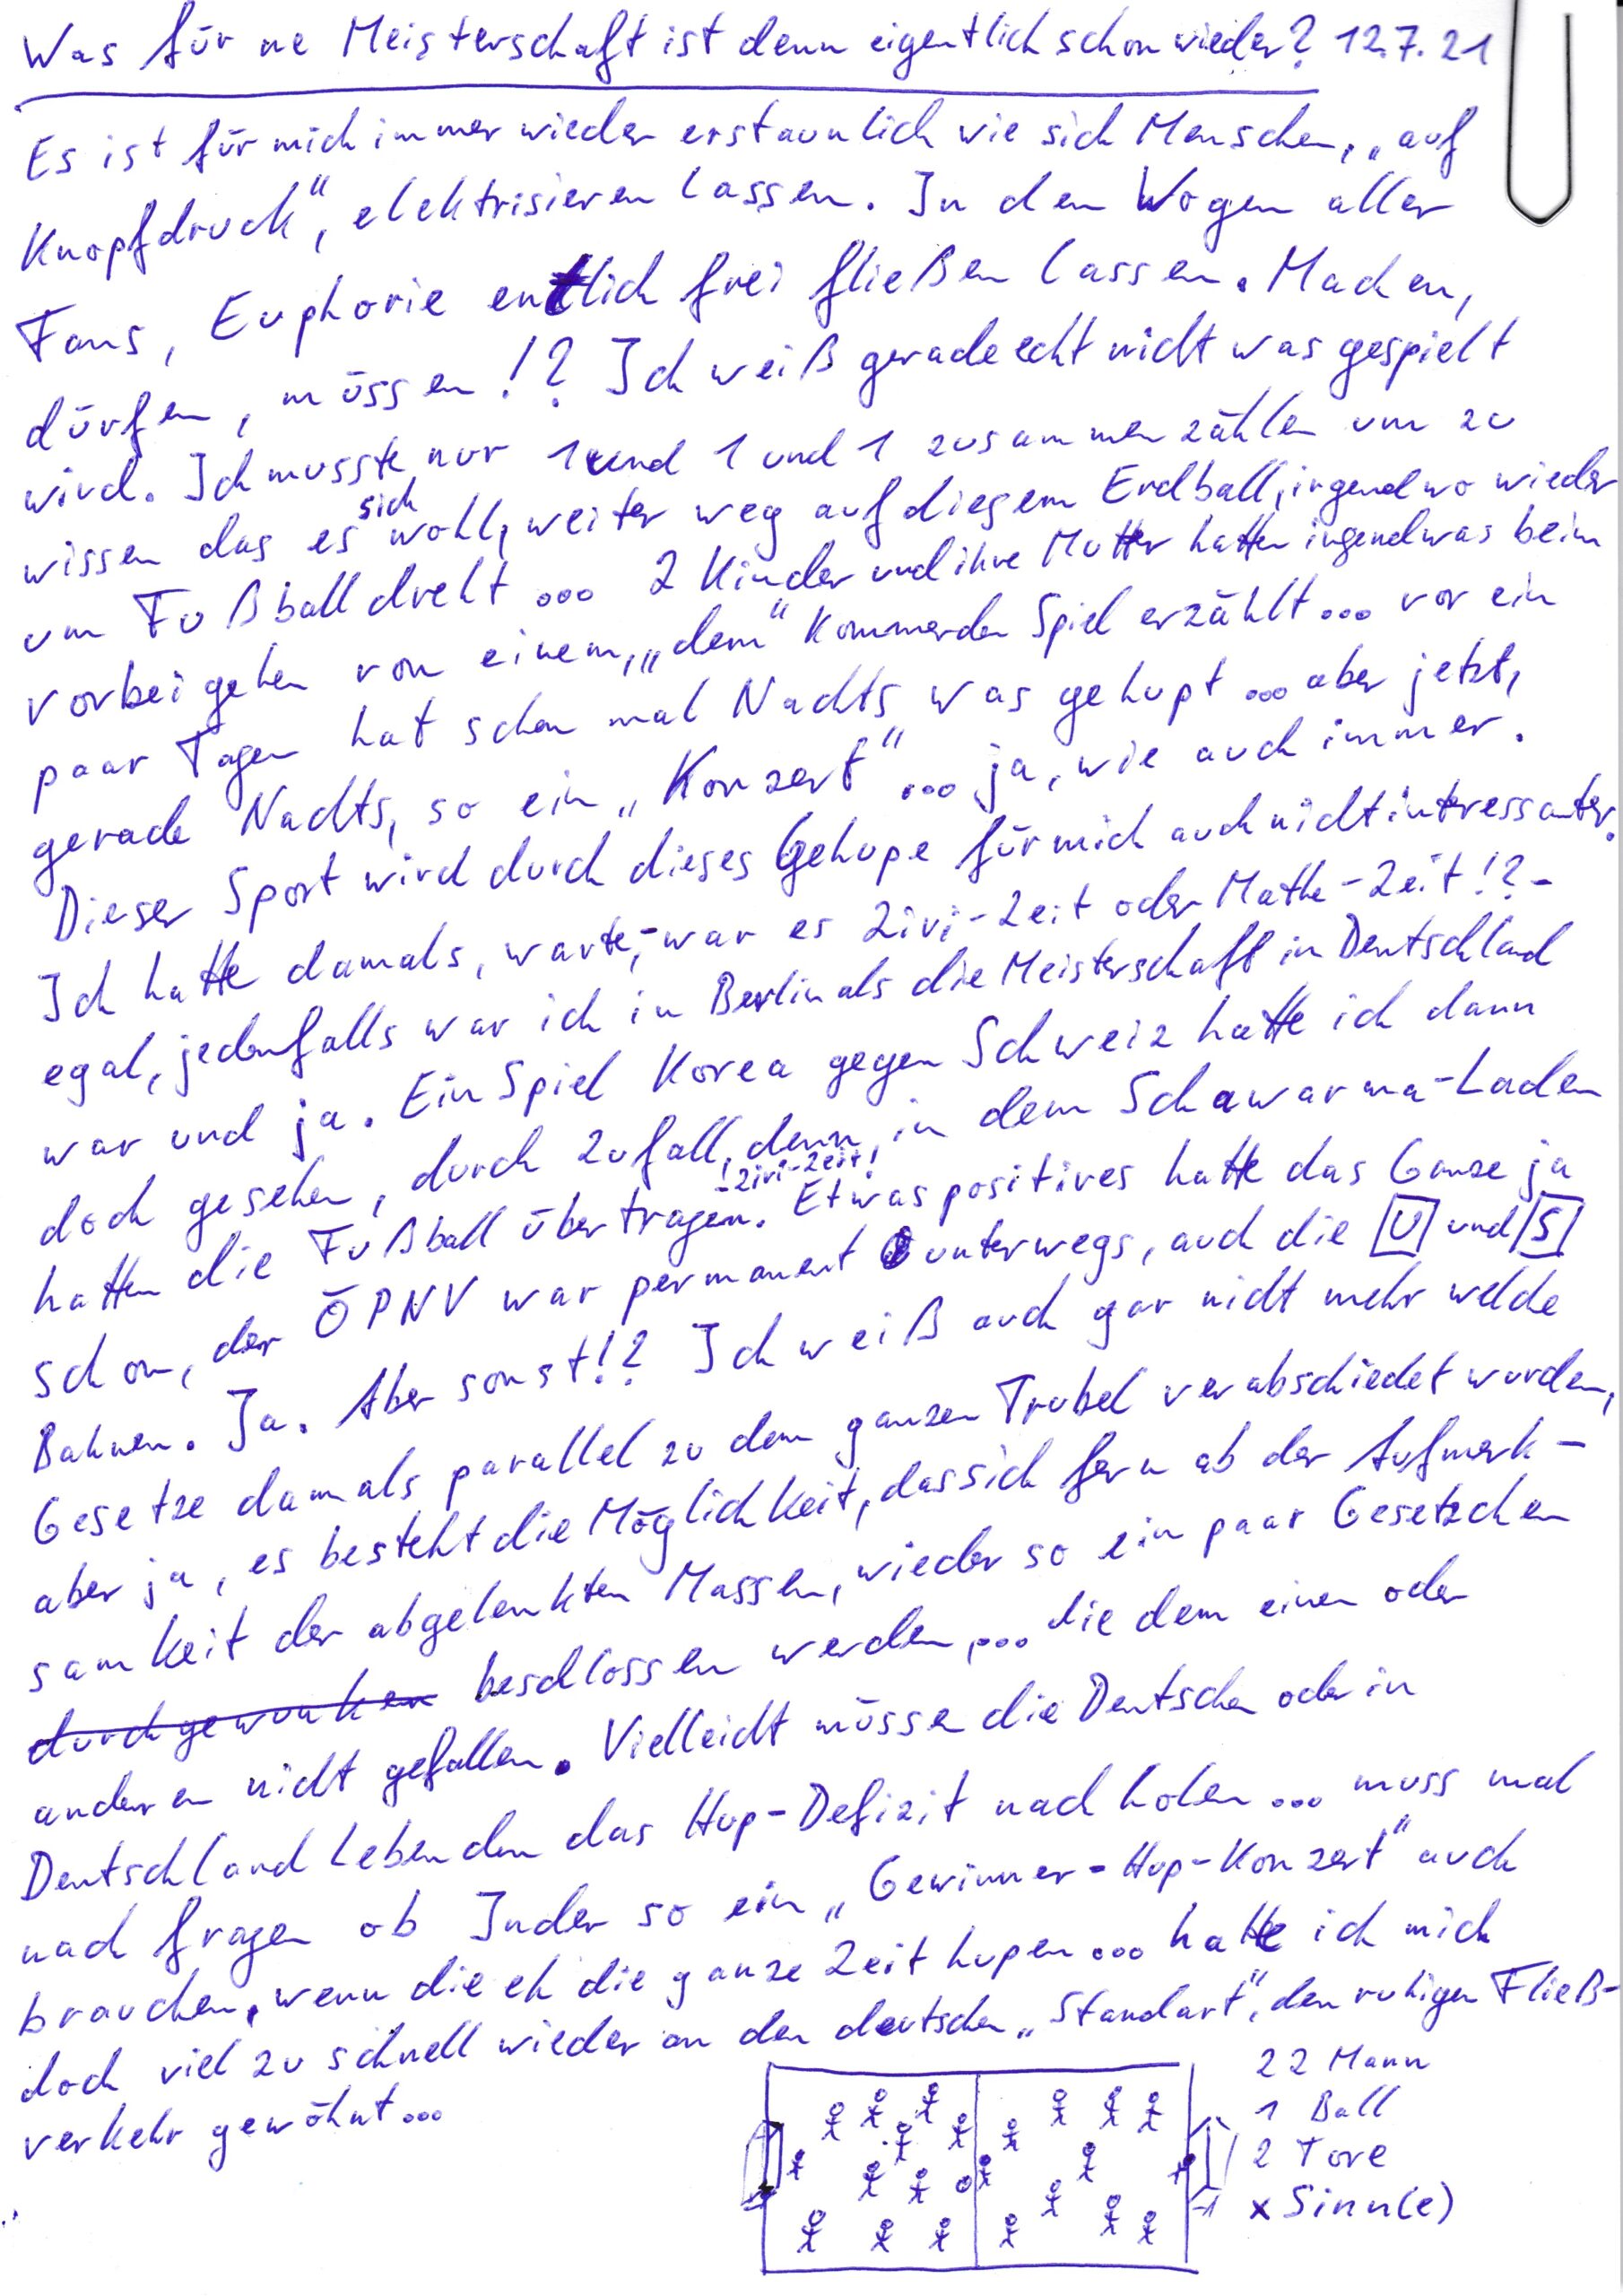 Was für ne Meisterschaft ist denn eigentlich schon wieder? 12.7.21
Es ist für mich immer wieder erstaunlich wie sich Menschen, „auf
Knopfdruck“, elektrisieren lassen. In den Wogen aller
Fans, Euphorie entlich frei fließen lassen. Machen,
dürfen, müssen!? Ich weiß gerade echt nicht was gespielt
wird. Ich musste nur 1 und 1 und 1 zusammenzählen um zu
wissen das es sich wohl, weiter weg auf diesem Erdball, irgendwo wieder
um Fußball dreht ... 2 Kinder und ihre Mutter hatten irgendwas beim
vorbeigehen von einem, „dem“ kommenden Spiel erzählt... vor ein
paar Tagen hat schon mal Nachts was gehupt ... aber jetzt,
gerade Nachts, so ein „Konzert“... ja, wie auch immer.
Dieser Sport wird durch dieses Gehupe für mich auch nicht intressanter.
Ich hatte damals, warte,- war es Zivi-Zeit oder Mathe-Zeit!?-
egal, jedenfalls war ich in Berlin als die Meisterschaft in Deutschland
war und ja. Ein Spiel Korea gegen Schweiz hatte ich dann
doch gesehen, durch Zufall, denn, in dem Schawarma-Laden
hatten die Fußball übertragen. -Zivi-Zeit! Etwas positives hatte das Ganze ja
schon, der ÖPNV war permanent unterwegs, auch die U und S
Bahnen. Ja. Aber sonst!? Ich weiß auch gar nicht mehr welche
Gesetze damals parallel zu dem ganzen Trubel verabschiedet wurden,
aber ja, es besteht die Möglichkeit, das sich fern ab der Aufmerk-
samkeit der abgelenkten Massen, wieder so ein paar Gesetzchen
durchgewunken beschlossen werden,... die dem einen oder
anderen nicht gefallen. Vielleicht müssen die Deutschen oder in
Deutschland Lebenden das Hup-Defizit nachholen ... muss mal
nachfragen ob Inder so ein „Gewinner-Hup-Konzert“ auch
brauchen, wenn die eh die ganze Zeit hupen ... hatte ich mich
doch viel zu schnell wieder an den deutschen „Standart“, den ruhigen Fließ-
verkehr gewöhnt...
22 Mann
1 Ball
2 Tore
x Sinn(e)